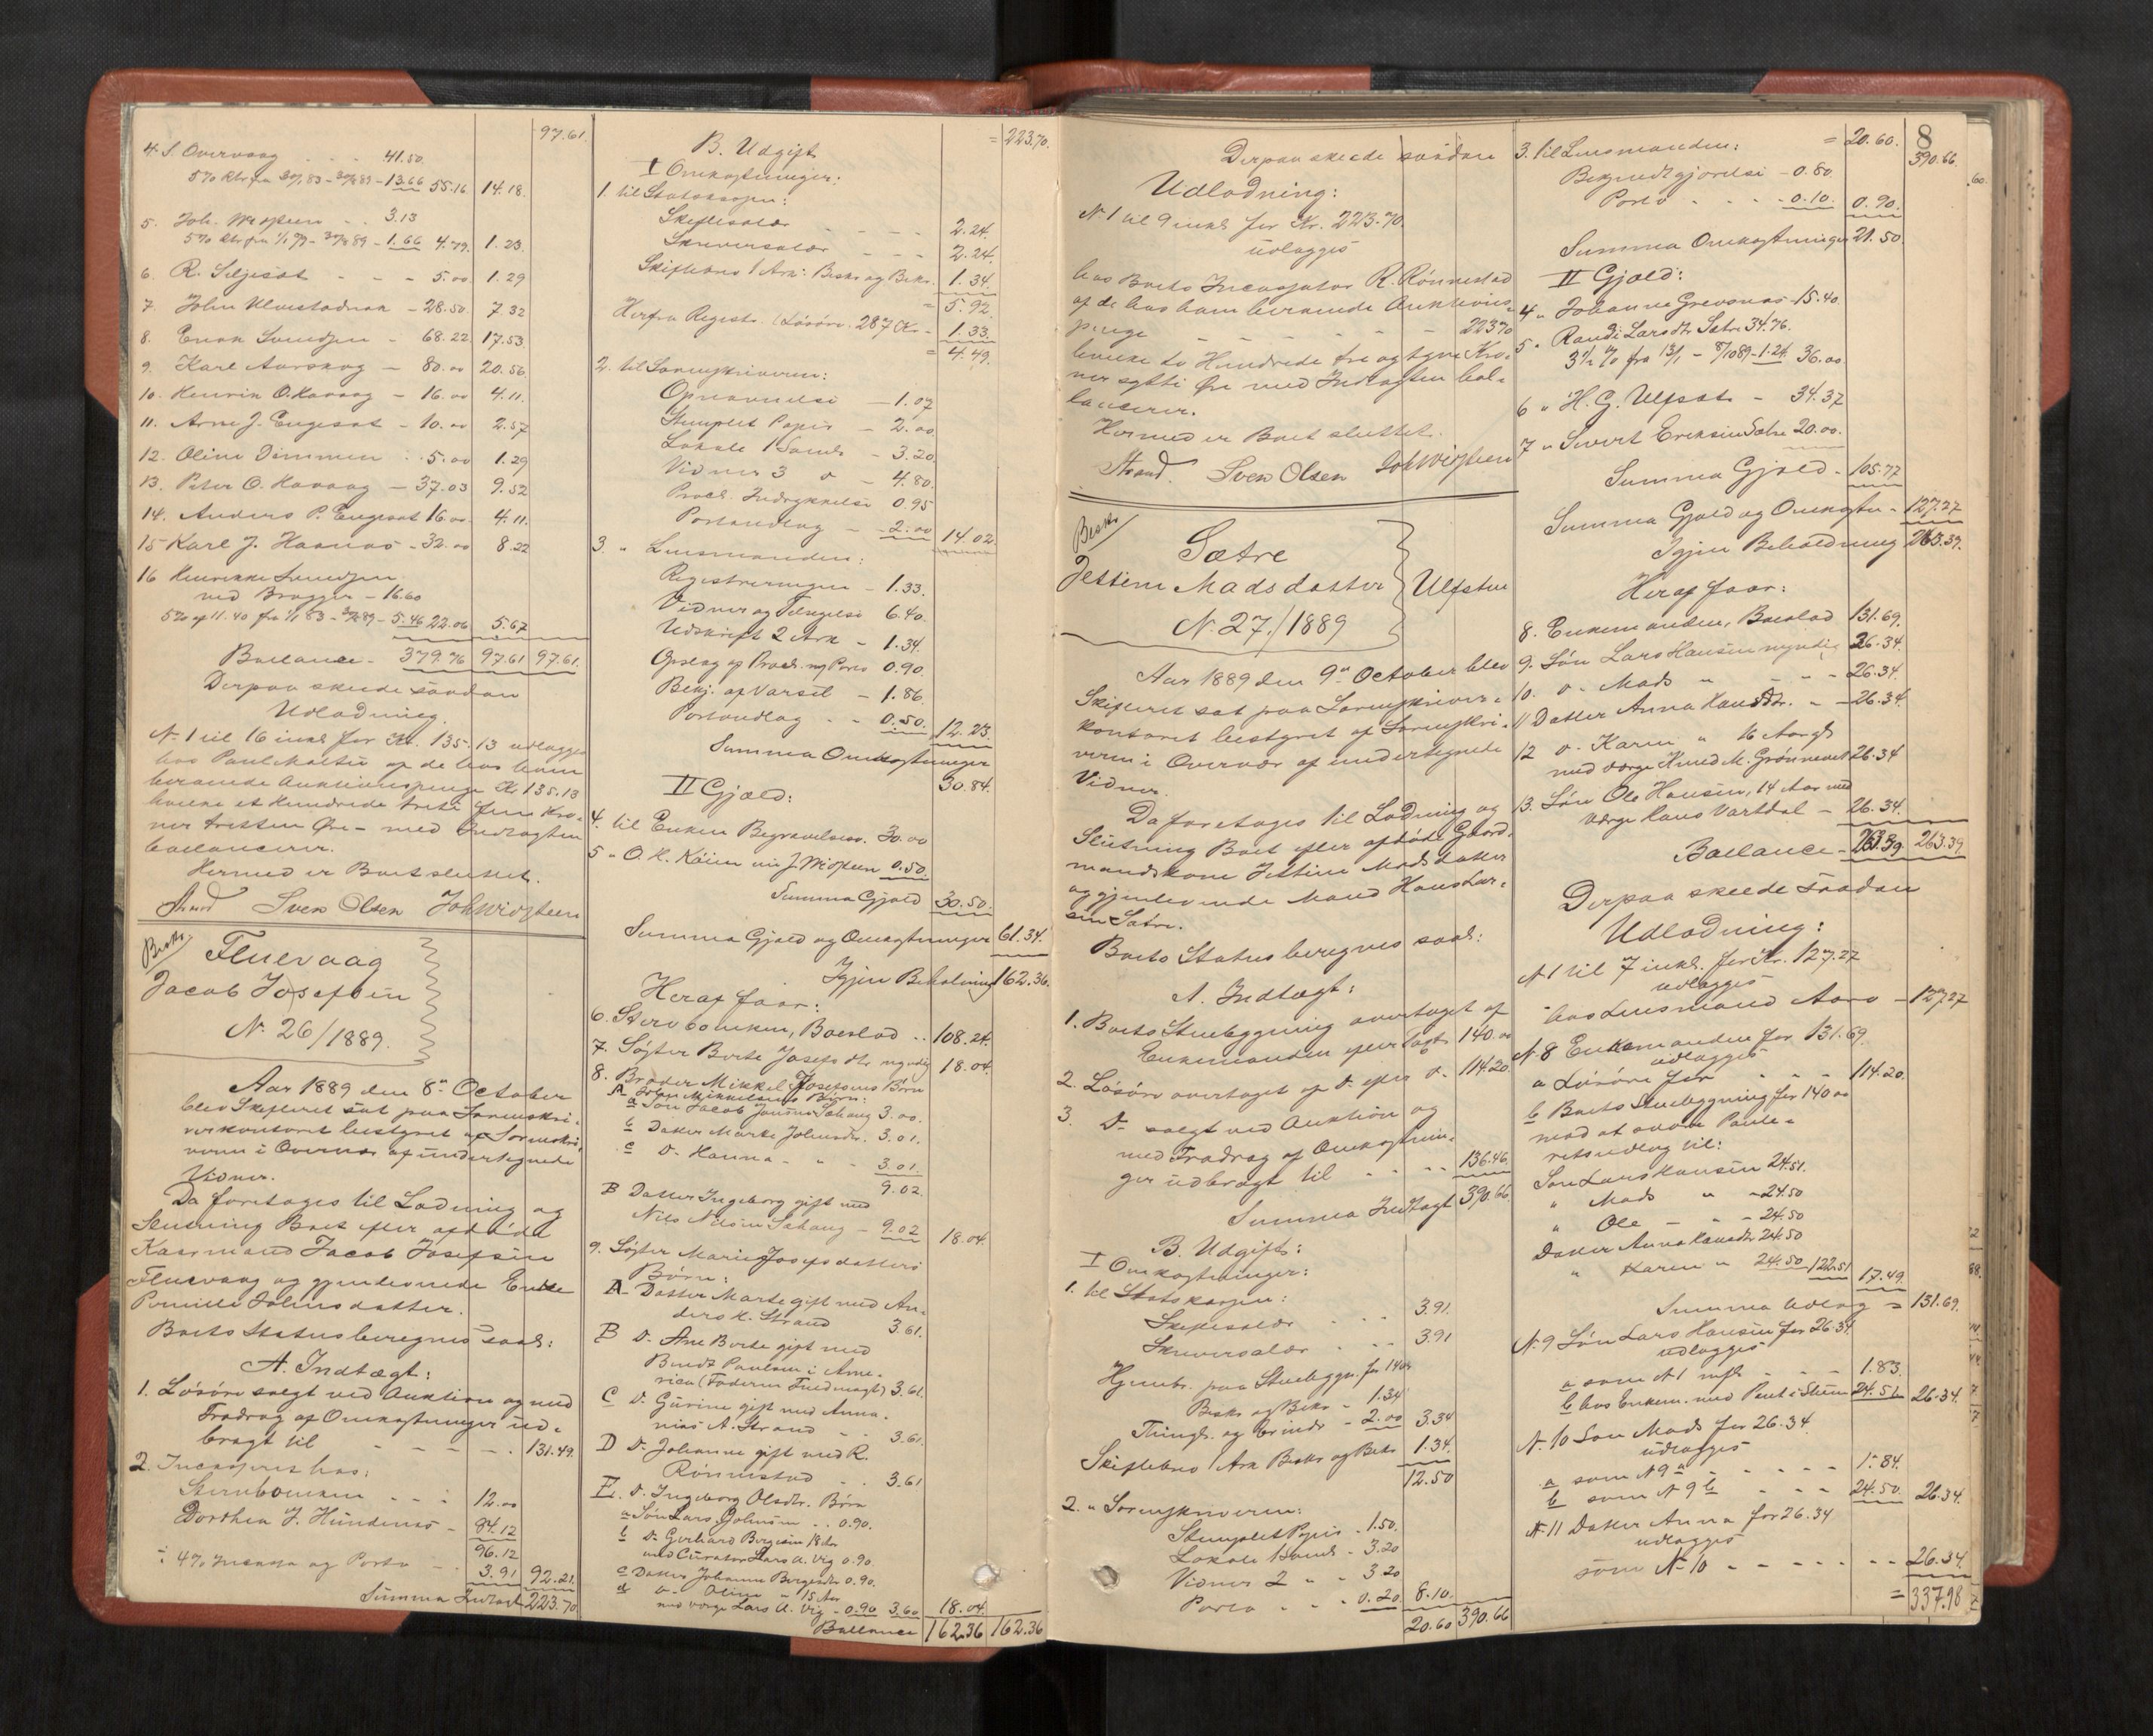 97.61.
4. S. Overvaag . . . 41.50.
5% Rtr fra 30/1 83 - 30/8 89 - 13.66 55.16 14.18.
5. Joh. . . 3.13
5% Rtr fra 1/1 79 - 30/8 89 - 1.66 4.79. 1.23.
6. R. Seljesæt - - - 5.00. 1.29
7. John - 28.50. 7 32
8. Enok Svendsen - 68.22. 17.53.
9. Karl Aarskog - 80.00 20.56.
10. Henrik O. Havaag - 16.00 4.11.
11. Arne J. Engeset - 10.00 2.57
12. Oline Dimmen . . 5.00 1.29
13. Peter O. Havaag - 37.03 9.52
14. Anders P. Engeset 16.00. 4.11.
15 Karl J. Haanæs - 32.00 8.22
16 Henrikke Svendsen
ved Brygger - 16.60
5% af 11.40 fra 1/1 83 - 30/8 89 - 5.46 22.06 5.67
Ballance - 379.76 97.61 97.61.
Derpaa skede saadan
Udlodning.
No 1 til 16 inkl for Kr. 135.13 udlægges
hos Paul af de hos ham
beroende Auktionspenge Kr 135.13
hvilke et Hundrede treti fem Kro-
ner tretten Øre - med Indtægten
ballancerer.
Hermed er Boet sluttet.
Strand Sven Olsen Joh Wiigsteen
Besks.
Fluevaag
Jacob Josefsen
No 26/1889.
Aar 1889 den 8de October
blev Skifteret sat paa Sorenskri-
verkontoret bestyret af Sorenskri-
veren i Overvær af undertegnede
Vidner.
Da foretoges til Lodning og
Slutning Boet efter afdøde
Kaarmand Jacob Josefsen
Fluevaag og gjenlevende Enke
Pernille Johnsdatter.
Boets Status beregnes saal:
A. Indtægt:
1. Løsøre solgt ved Auktion og med
Fradrag af Omkostninger ud-
bragt til - - - - . 131.49.
2. Incasseret hos:
Sterbo - - - 12.00
Dorthea J. Hundenes - 84.12
96.12
÷ 4% Incasso og Porto - 3.91 92.21.
Summa Indtægt 223.70
= 223.70.
B. Udgift
I Omkostninger:
1. til Statskassen:
Skiftesalær - - - - 2.24.
Skriversalær - - - 2.24.
Skiftebrev 1 Ark: Besks og Beks. 1.34.
= 5.92.
Herfra Registr. i Løsøre. 287 Kr. - 1.33.
= 4.49.
2. til Sorenskriveren:
Opnævnelse - 1.07
Stemplet Papir - 2.00
Lokale 1 Saml. - 3.20.
Vidner 3 do - 4.80.
Procl. Indrykkelse 0.95
Portoudlæg - 2.00 14.02.
3. " Lensmanden:
Registreringen - 1.33.
Vidner og Tilsigelse 6.40.
Udskrift 2 Ark - 1.34.
Opslag af Procl. og Porto 0.90.
Bekj. af Varsel - 1.86.
Portoudlæg . . 0.50. 12.23.
Summa Omkostninger
30.84.
II Gjæld:
4. til Enken Begravelsesv. 30.00
5 " O. K. 0.50.
Summa Gjæld 30.50.
Summa Gjæld og Omkostninger 61.34.
Igjen Beholdning 162.36.
Heraf faar:
6. Sterboenken, Boeslod .. 108.24.
7. Søster Berte Josefsdtr myndig 18.04.
8. Broder Mikkel Josefsens Børn
A. John Mikkelsens Børn:
a Søn Jacob Johnsen Sahaug 3.00.
b Datter Marte Johnsdtr. 3.01.
c Do Hanna - " - 3.01.
9.02.
B Datter Ingeborg gift med
Nils Nilsen Sahaug - 9.02 18.04.
9. Søster Marie Josefsdatters
Børn:
A Datter Marte gift med An-
ders K. Strand 3.61.
B Do Ane Berte gift med
Bendt Paulsen i Ame-
rica (Faderen Fuldmægt.) 3.61.
C Do Gurine gift med Anna-
nias A. Strand . . 3.61.
D Do Johanne gift med R.
Rönnestad . . 3.61
E. Do Ingeborg Olsdtr. Børn
a Søn Lars Johnsen . . 0.90.
b Do Gerhard Bergesen 18 Aar
med Curator Lars A. Vig 0.90.
c Datter Johanne Bergesdtr 0.90.
d Do Oline - " - 15 Aar
med værge Lars A. Vig - 0.90 3.60 18.04.
Ballance 162.36 162.36
Derpaa skede saadan
Udlodning:
No 1 til 9 inkl for Kr. 223.70.
udlægges
hos Boets Incassator R. Rönnestad
af de hos ham beroende Auktions-
penge - - - - - 223 70
hvilke to Hundrede tre og tyve Kro-
ner sytti Øre med Indtægten bal-
lancerer.
Hermed er Boet sluttet.
Strand. Sven Olsen Joh Wiigsteen
Besks
Sætre
Jessine Madsdatter Ulfsten
No 27./1889
Aar 1889 den 9de October blev
Skifteret sat paa Sorenskriver-
kontoret bestyret af Sorenskri-
veren i Overvær af undertegnede
Vidner.
Da foretoges til Lodning og
Slutning Boet efter afdøde Gaard-
mandskone Jessine Madsdatter
og gjenlevende Mand Hans Lar-
sen Sætre.
Boets Status beregnes saal:
A. Indtægt:
1. Boets Stuebygning overtaget af
Enkemanden efter Taxt 140.00
2. Løsøre overtaget af Do efter Do. 114.20.
3. Do solgt ved Auktion og
med Fradrag af Omkostnin-
ger udbragt til - - - 136.46.
Summa Indtægt 390.66.
B. Udgift:
I Omkostninger:
1. til Statskassen:
Skiftesalær . . . 3.91.
Skriversalær . . . 3.91
Hjembr. paa Stuebygn. for 140 Kr
Besks og Beks - 1.34
Thingl. og Grundb. - 2.00 3.34
Skiftebrev 1 Ark Besks og Beks 1.34.
12.50
2. " Sorenskriveren:
Stemplet Papir - 1.50.
Lokale 1 Saml. - 3.20
Vidner 2 " - 3.20
Porto . . . 0.20. 8.10.
20.60 390.66
8
3. til Lensmanden: = 20.60. 390.66.
Bekjendtgjørelse - 0.80.
Porto - - - 0.10. 0.90.
Summa Omkostninger 21.50.
II Gjæld:
4 " Johanne Grevsnæs - 15.40.
5 " Randi Larsdtr Sætre 34.76.
3½ % fra 13/1 - 8/10 89 - 1.24. 36.00
6 " H. G. Ulfst. - 34.37
7 " Sivert Eriksen Sætre 20.00.
Summa Gjæld - 105.77
Summa Gjæld og Omkostn - 127.27
Igjen Beholdning 263.39.
Heraf faar:
8. Enkemanden, Boeslod 131.69.
9. Søn Lars Hansen myndig 26.34.
10. Do Mads " - - - 26.34.
11 Datter Anna Hansdtr. - - 26.34.
12 Do Karen " 16 Aargl.
med værge Knud M. Grönnevet 26.34
13. Søn Ole Hansen, 14 Aar med
Værge Hans Vartdal - 26.34.
Ballance - 263.39 263.39
Derpaa skede saadan
Udlodning:
No 1 til 7 inkl. for Kr. 127.27
udlægges
hos Lensmand Aarø - 127.27
No 8 Enkemanden for 131.69.
udlægges
a Løsøre for - - - 114.20.
b Boets Stuebygning for 140 00
mod at
retsudlæg til:
Søn Lars Hansen 24.51.
" Mads " - 24.50
" Ole - " - 24.50
Datter Anna Hansdtr 24.50
" Karen " 24.50 122.51 17.49.
Summa Udlæg = 131.69.
No 9 Søn Lars Hansen for 26.34.
udlægges
a som No 1 - - - 1.83.
b hos Enkem. med Pant i Stuen 24.51 26.34.
No 10 Søn Mads for 26.34.
udlægges
a som No 9 a - - - - - 1.84.
b som No 9 b - - - 24.50. 26.34.
No 11 Datter Anna for 26.34
udlægges
som No 10 - - - - - - - 26.34.
= 337.98